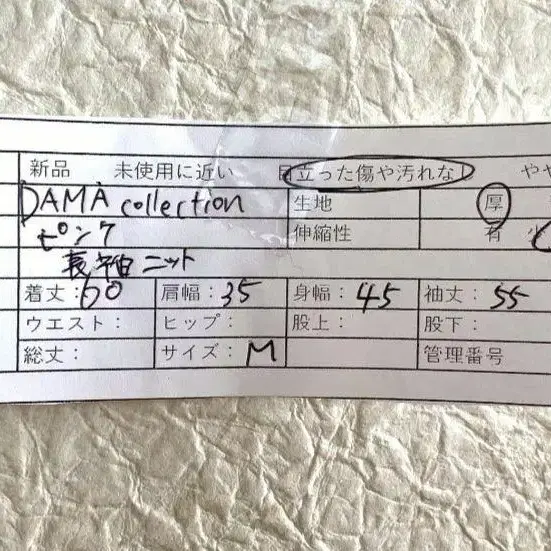 新品 未使用に近い 目立った傷や汚れなし やや
DAMA collection 生地 厚
ピンク 伸縮性 有 少
長袖ニット
着丈：60 肩幅：35 身幅：45 袖丈：55
ウエスト： ヒップ： 股上： 股下：
総丈： サイズ：M 管理番号